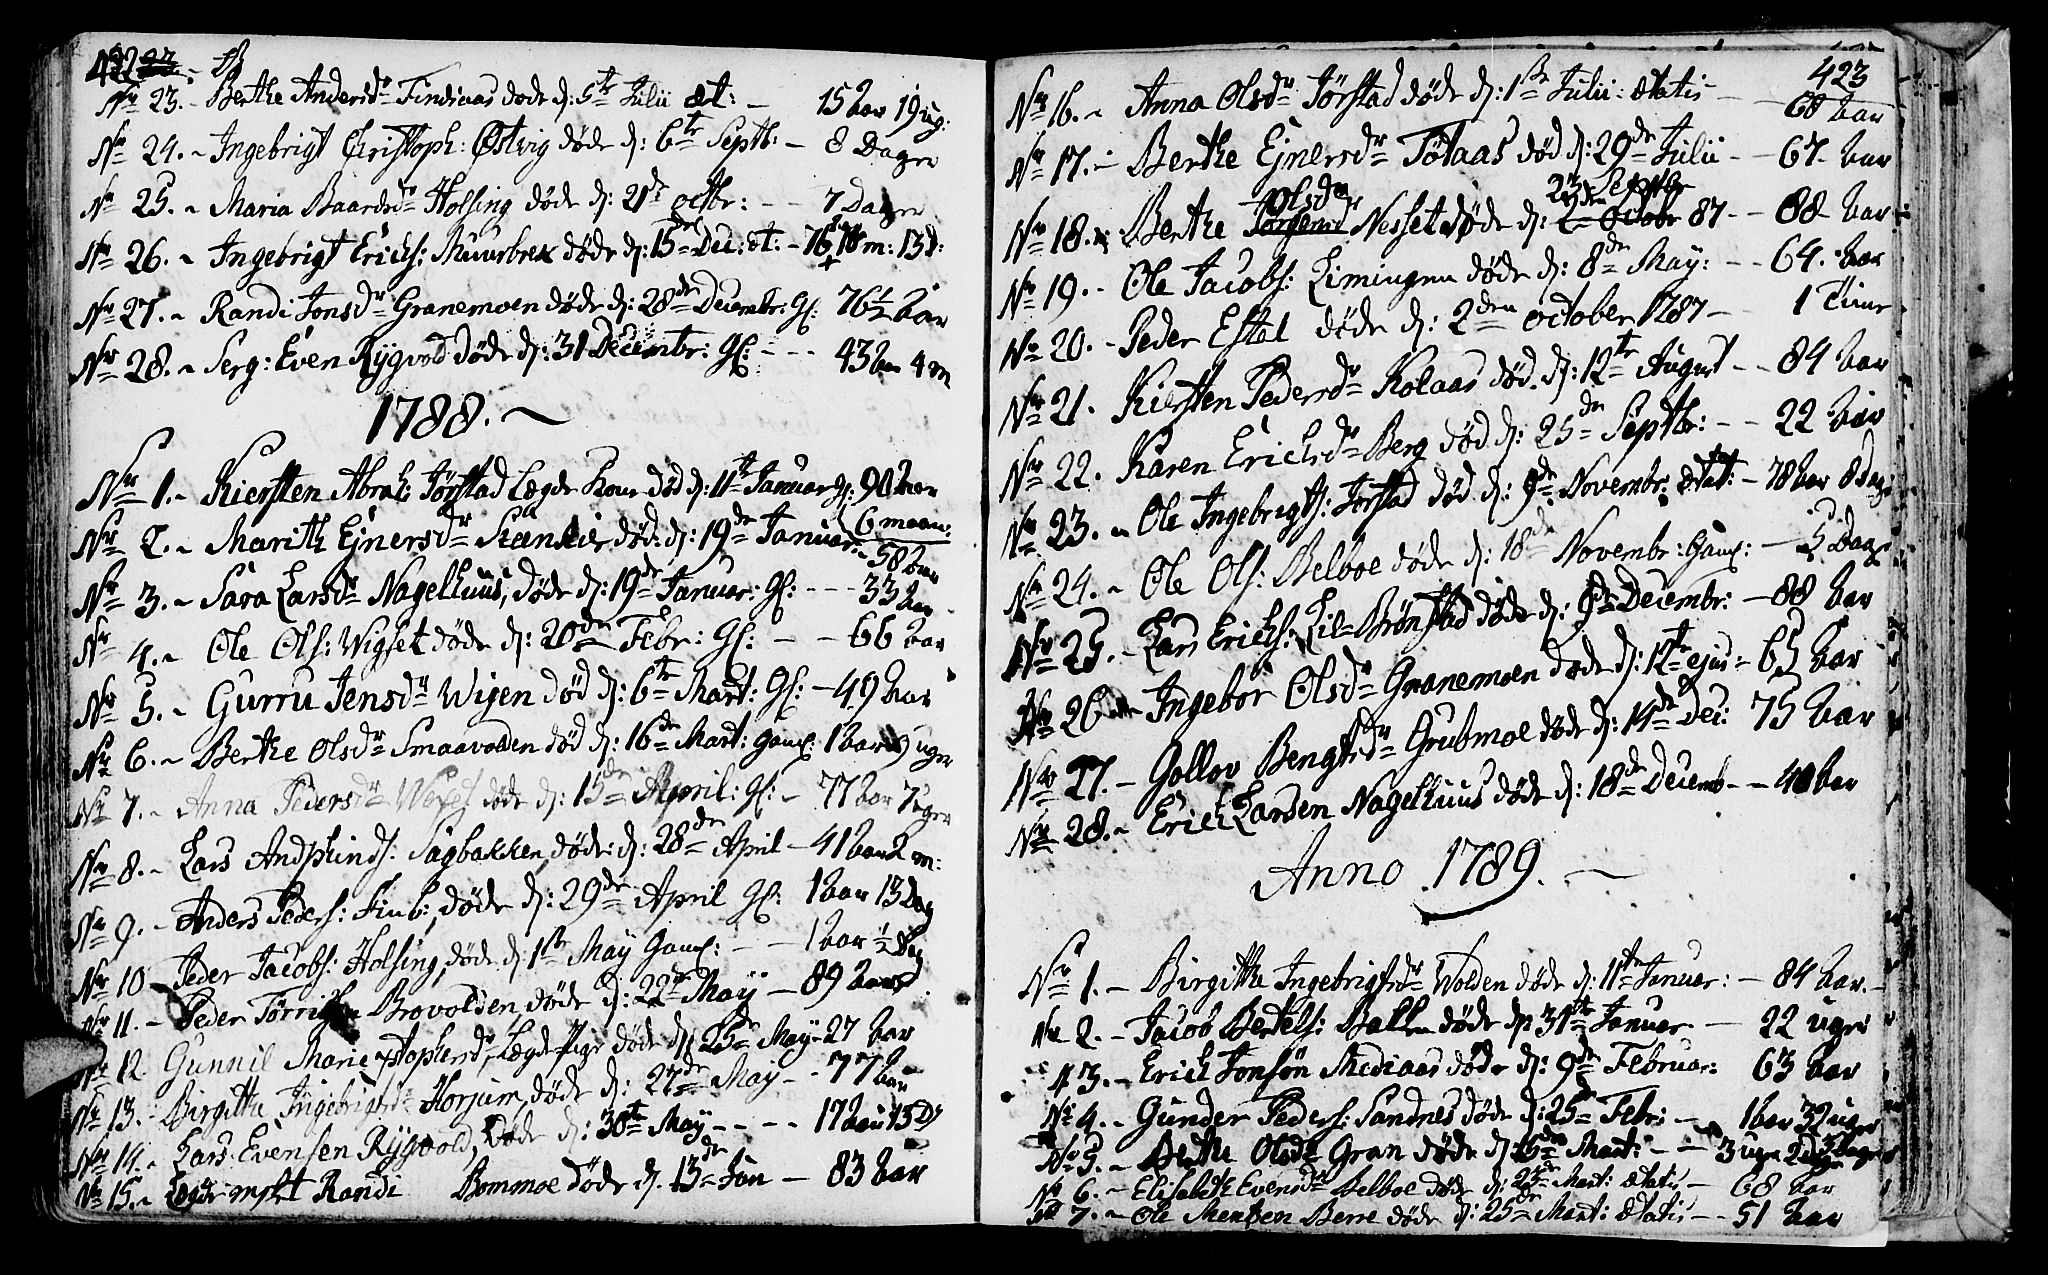 422
Nr 23. - Berthe Andersdr Findaas døde d: 5te Julii æt: - 15 aar 19 ug:
Nr 24. - Ingebrigt Christoph: Østvig døde d: 6te Septb: - 8 Dager
Nr 25. - Maria Baardsdr Holsing døde d: 21de octbr: - - 7 Dager
Nr 26. - Ingebrigt Erichs: Muurbrek døde d: 15de Dec: æt: - m: 13 d:
Nr 27. - Randi Jonsdr Granemoen døde d: 28de Decembr: gl: 76½ aar
Nr 28. - Serg: Even Rygvold døde d: 31 Decembr: gl: - - - 43 aar 4 m
1788. -
Nr 1. - Kiersten Abrah: Jørstad Lægds Kone død d: 11te Januar gl: 90 aar
6 maan:
Nr 2. - Marith Ejnersdr død d: 19de Januar - 58 aar
Nr 3. - Sara Larsdr Nagelhuus, døde d: 19de Januar: gl: - - - 33 aar
Nr 4. - Ole Ols: Wigset døde d: 20de Febr: gl: - - 66 aar
Nr 5. - Gurru Jensdr Wigen død d: 6te Mart: gl: - 49 aar
Nr 6. - Berthe Olsdr Smaavolden død d: 16de Mart: gaml: 1 aar 9 uger
Nr 7. - Anna Pedersdr døde d: 15de April: gl: - 77 aar 7 uger
Nr 8. - Lars Andphinds: Sagbakken, døde d: 28de April - 41 aar 2 m:
Nr 9. - Anders Peders: Finb:, døde d: 29de April gl: 1 aar 13 Dag
Nr 10 - Peder Jacobs: Holsing, døde d: 1ste May gaml: - - 1 aar ½ Dag
Nr 11. - Peder Brovolden, døde d: 22de May - 89 aar
Nr 12. Gunnil Marie Lægds Pige døde d: 25de May - 27 aar
Nr 13. - Birgitta Ingebrigtsdr Horjum, døde d: 27de May - - 77 aar
Nr 14. - Lars Evensen Rygvold, døde d: 30te May - - - - 17 aar 13 D
Nr 15. - Lægds Randi Bommoe døde d. 13de Jun - 83 aar
423
Nr 16. - Anna Olsdr Jørstad døde d: 1ste Julii: ætatis - - 68 aar
Nr 17. - Berthe Ejnersdr Tølaas død d: 29de Julii - - 67 aar
Olsdr 23de Septbr
Nr 18. Berthe Jørgensd Nesset døde d: 2 octobr 87 - - 88 aar
Nr 19. - Ole Jacobs: Limingen døde d: 8de May: - - 64. aar
Nr 20. - Peder Estal døde d: 2den october 1787 - 1 Time
Nr 21. Kiersten Pedersdr Kolaas død. d: 12te August - - 84 aar
Nr 22. Karen Erichsdr Berg død d: 25de Septbr: - - 22 aar
Nr 23. - Ole Ingebrigts: Jørstad død d: 9de Novembr: ætat: - 78 aar 8 dag
Nr 24. - Ole Ols: Belboe døde d: 18de Novembr: gaml: - 5 Dag
Nr 25. - Lars Erichs: Lil-Brønstad døde d: 9de Decembr: - 88 aar
Nr 26 - Ingebor Olsdr Granemoen døde d: 12te ejus - 65 aar
Nr 27. - Gollov Bengtsdr Grubmoe døde d: 14de Dec: 75 aar
Nr 28. - Erich Larsen Nagelhuus døde d: 18de Decemb - - 40 aar
Anno 1789. -
Nr 1. - Birgitha Ingebrigtsdr Wolden døde d: 11te Januar: - 84 aar. -
Nr 2. - Jacob Bertels: Bakken døde d: 31te Januar - 22 uger
3. - Erich Jonsøn Mediaas døde d: 9de Februar: 63 aar
Nr 4. - Gunder Peders: Sandnes døde d: 25de Febr: - 1 aar 32 uger
Nr 5. - Berthe Olsdr Gran døde d: Mart: - - 3 uger
Nr 6. - Elisabeth Evensdr Belboe døde d: 23de Mart: ætatis - 68 aar
Nr 7. - Ole Mentzen Berre døde d: 25de Mart: ætatis - - 51 aar